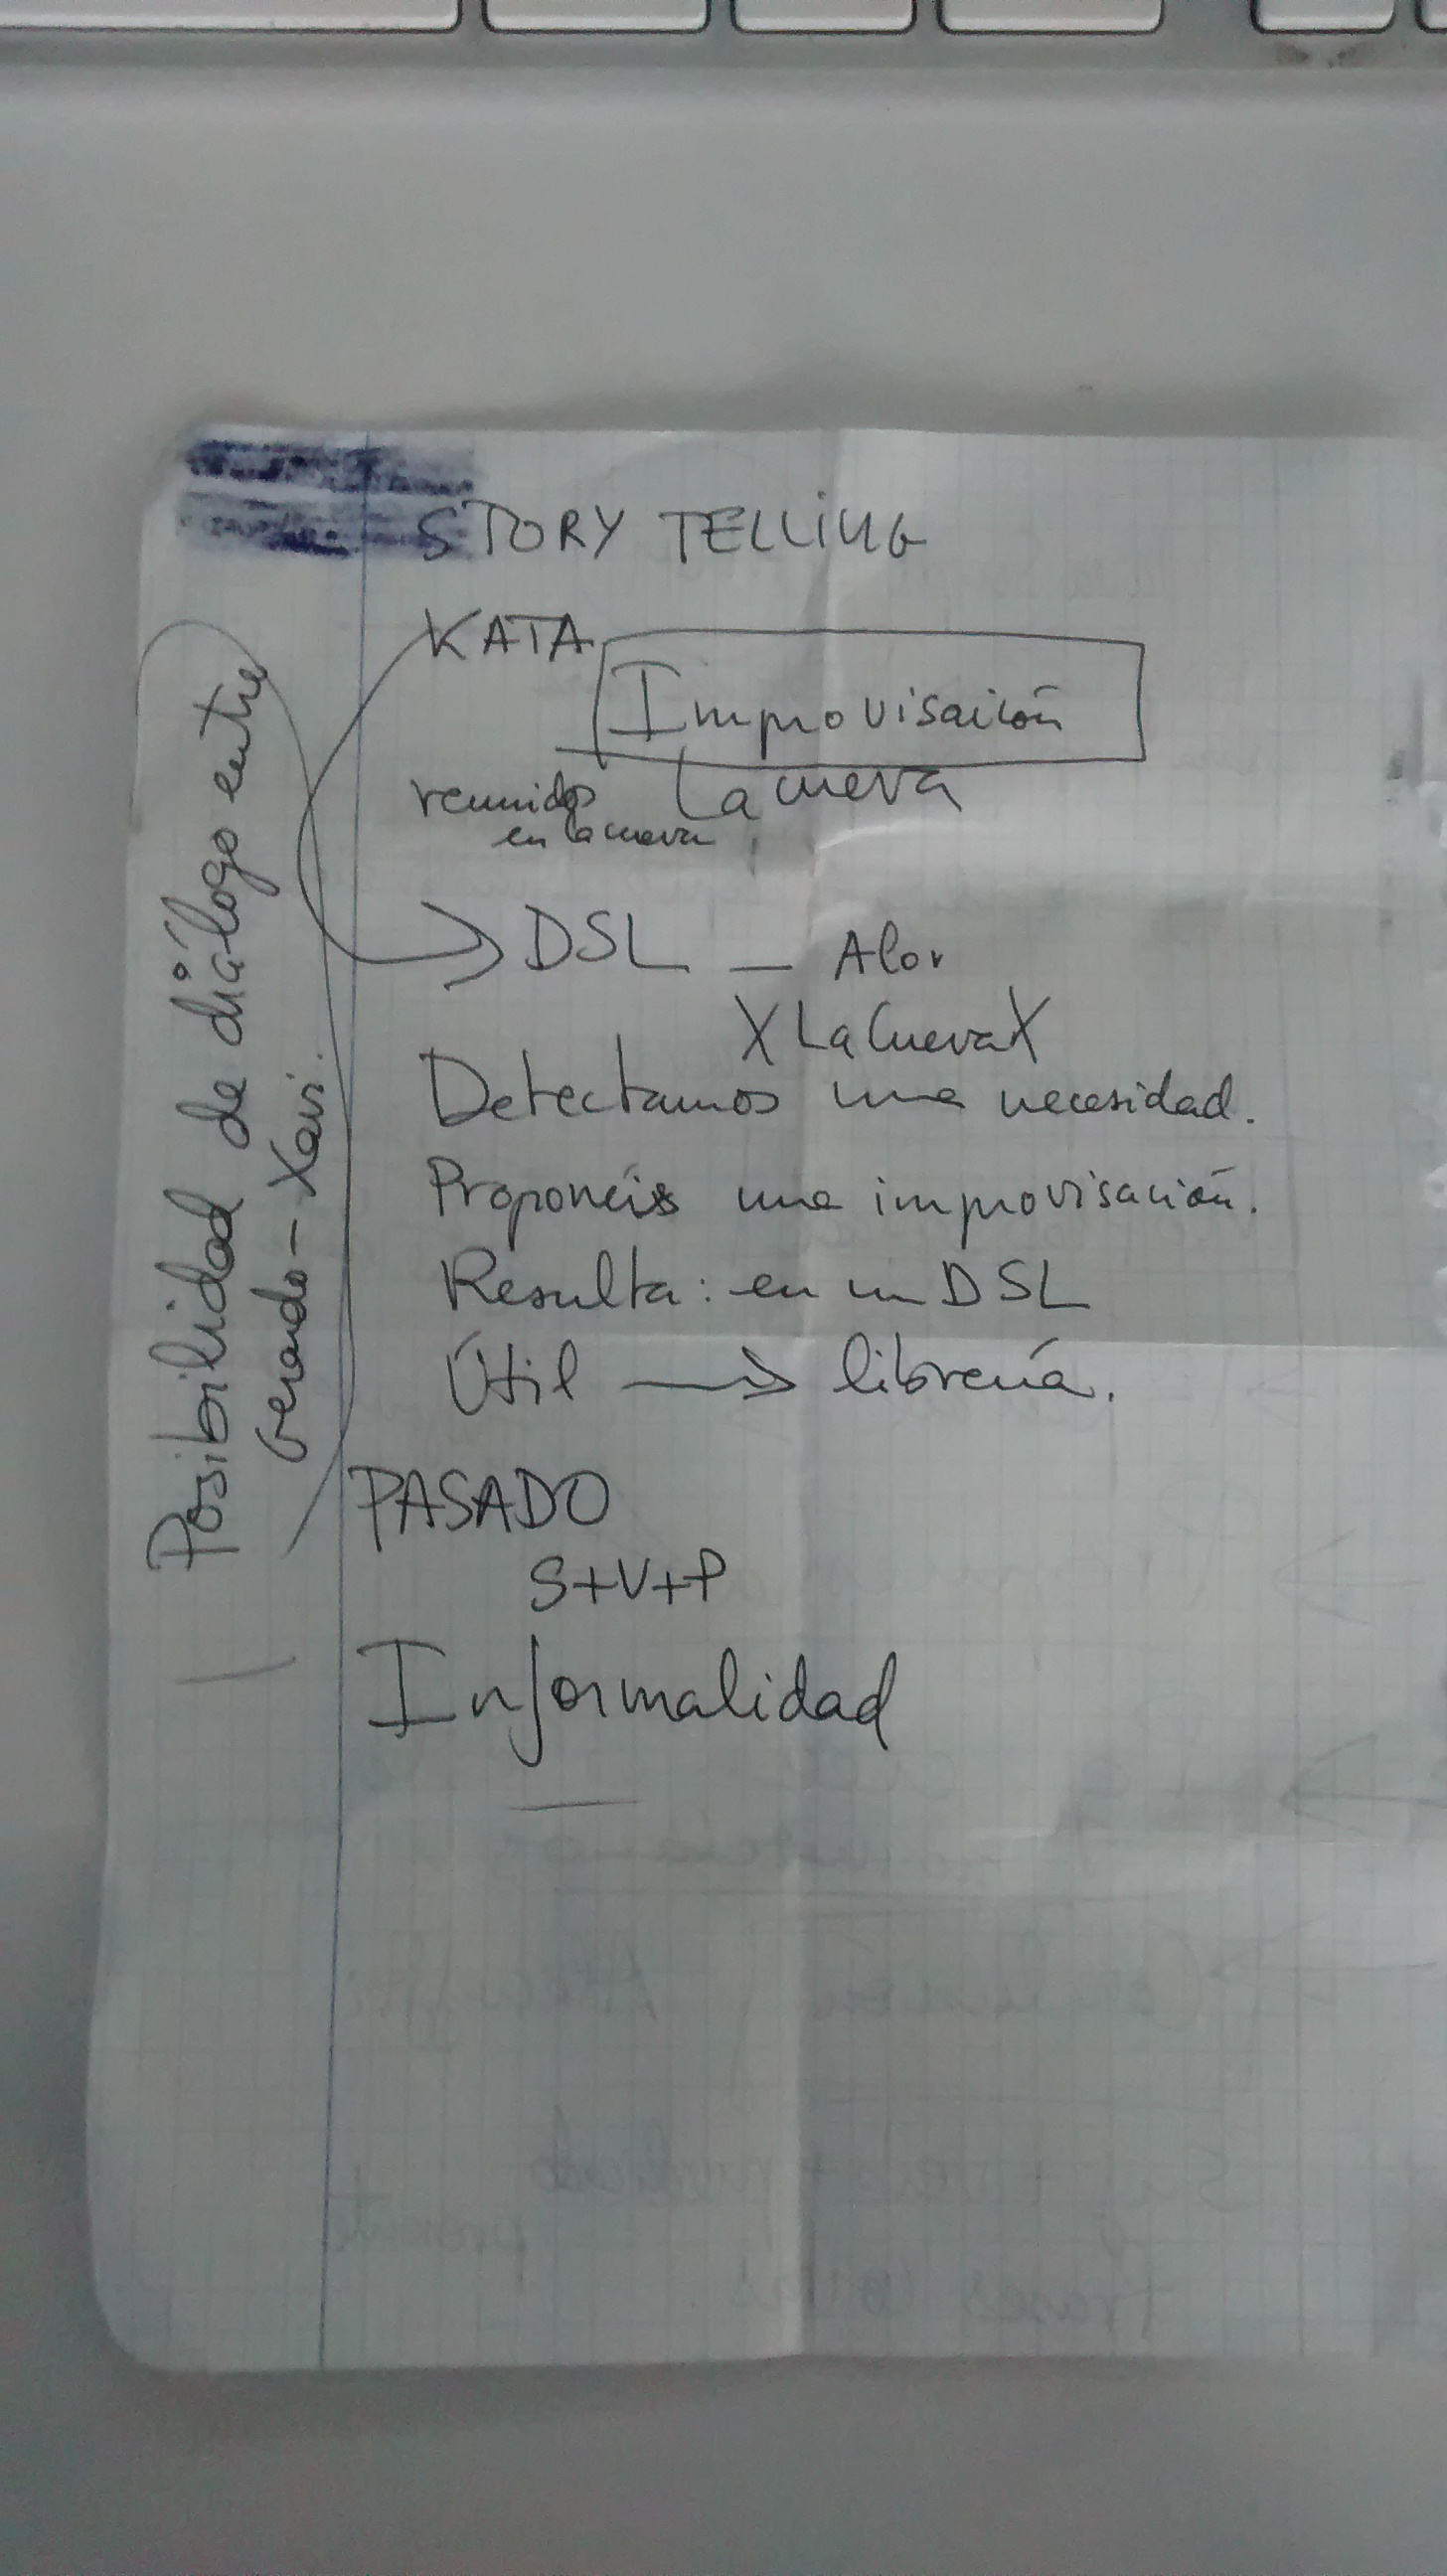 STORY TELLING
KATA
Improvisación
reunidos La cueva
en la cueva
DSL — Alor
X La Cueva X
Detectamos una necesidad.
Proponéis una improvisación.
Resulta: en un DSL
Útil → librería.
PASADO
S+V+P
Informalidad
Posibilidad de diálogo entre
Gerardo - Xavi.